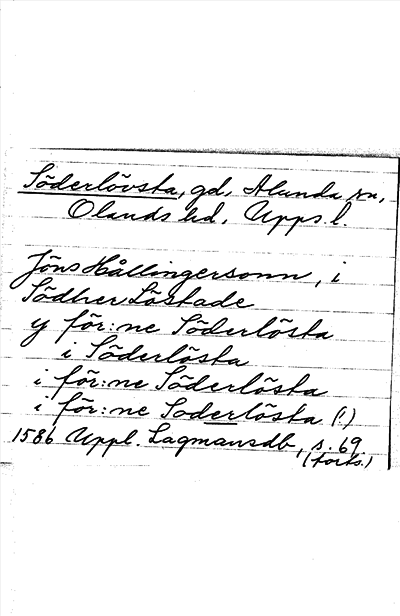 Söderlövsta, gd, Alunda sn,
Olands hd, Upps. l.
Jöns Hållingersonn, i
Södher Löstade
y för:ne Söderlösta
i Söderlösta
i för:ne Söderlösta
i för:ne Soderlösta (!)
1586 Uppl. Lagmansdb, s. 69
(forts.)